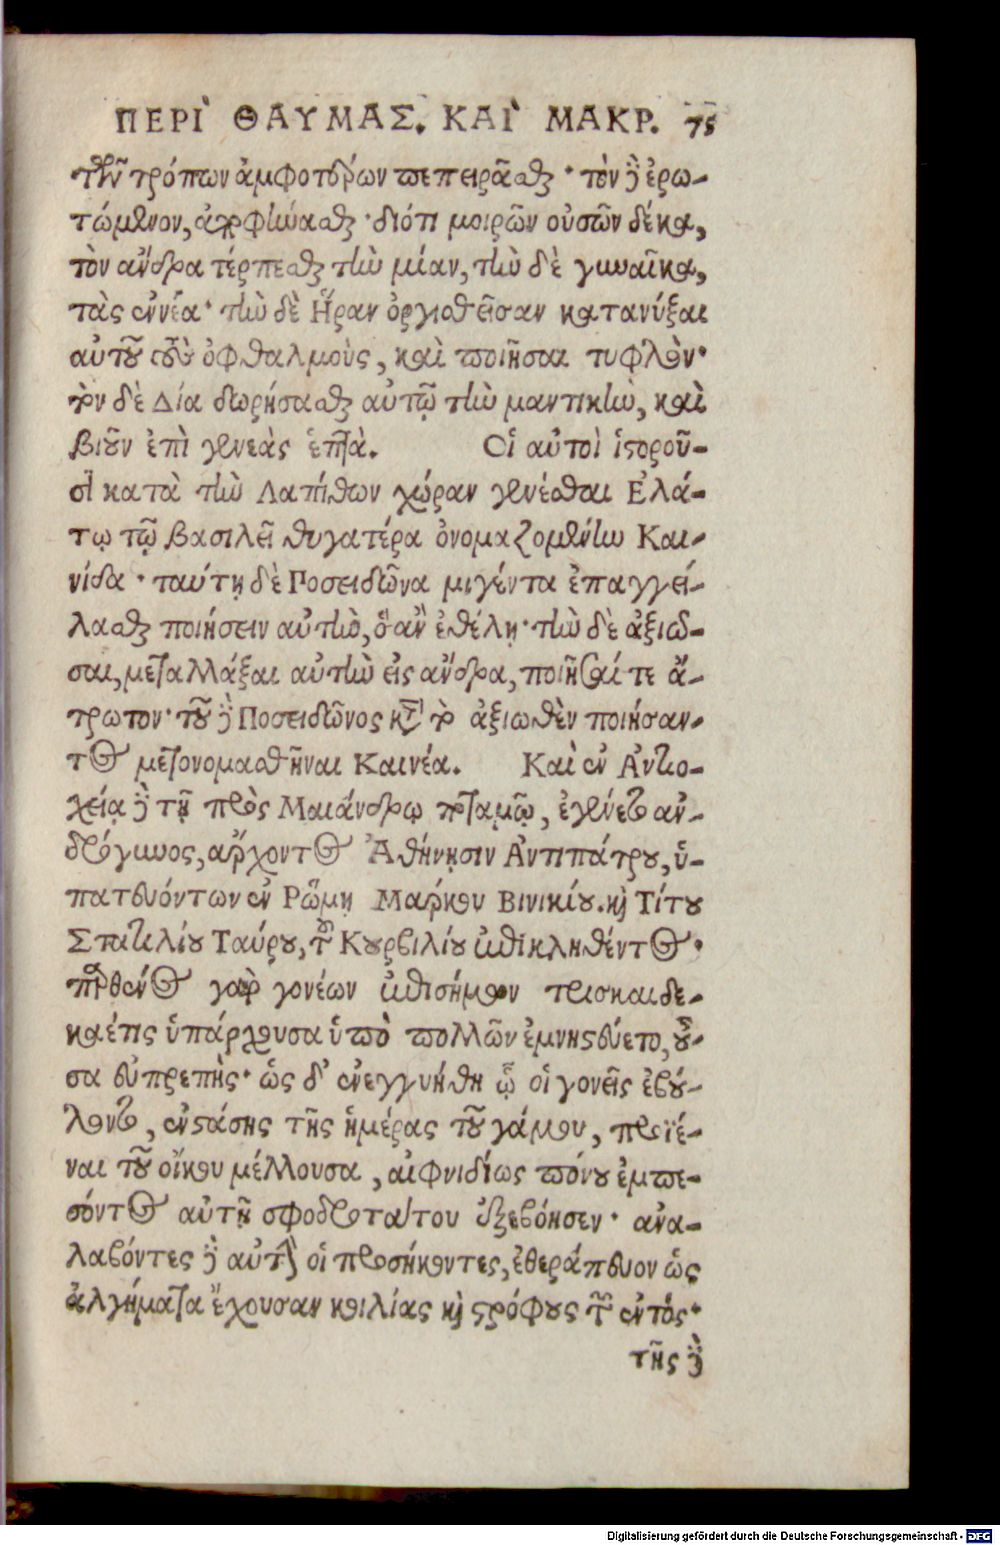 ΠΕΡΙ ΘΑΥΜΑΣ. ΚΑΙ ΜΑΚΡ. 75
τῶν τρόπων ἀμφοτέρων πεπειρᾶσθαι· τὸν δὲ ἐρω-
τώμενον, ἀποφήνασθαι· διότι μοιρῶν οὐσῶν δέκα,
τὸν ἄνδρα τέρπεσθαι τὴν μίαν, τὴν δὲ γυναῖκα,
τὰς ἐννέα· τὴν δὲ Ἥραν ὀργισθεῖσαν κατανύξαι
αὐτοῦ τοὺς ὀφθαλμοὺς, καὶ ποιῆσαι τυφλόν·
τὸν δὲ Δία δωρήσασθαι αὐτῷ τὴν μαντικὴν, καὶ
βιοῦν ἐπὶ γενεὰς ἑπτά. Οἱ αὐτοὶ ἱστοροῦ-
σι κατὰ τὴν Λαπίθων χώραν γενέσθαι Ἐλά-
τῳ τῷ βασιλεῖ θυγατέρα ὀνομαζομένην Και-
νίδα· ταύτῃ δὲ Ποσειδῶνα μιγέντα ἐπαγγεί-
λασθαι ποιήσειν αὐτὴν, ὃ ἂν ἐθέλῃ· τὴν δὲ ἀξιῶ-
σαι, μεταλλάξαι αὐτὴν εἰς ἄνδρα, ποιῆσαί τε ἄ-
τρωτον· τοῦ δὲ Ποσειδῶνος κατὰ τὸ ἀξιωθὲν ποιήσαν-
τος μετονομασθῆναι Καινέα. Καὶ ἐν Ἀντιο-
χείᾳ δὲ τῇ πρὸς Μαιάνδρῳ ποταμῷ, ἐγένετο ἀν-
δρόγυνος, ἄρχοντος Ἀθήνησιν Ἀντιπάτρου, ὑ-
πατευόντων ἐν Ῥώμῃ Μάρκου Βινικίου. καὶ Τίτου
Στατιλίου Ταύρου, τοῦ Κουρβιλίου ἐπικληθέντος·
παρθένος γὰρ γονέων ἐπισήμων τρισκαιδε-
καέτις ὑπάρχουσα ὑπὸ πολλῶν ἐμνηστεύετο, οὖ-
σα εὐπρεπής· ὡς δ' ἐνεγγυήθη ᾧ οἱ γονεῖς ἐβού-
λοντο, ἐνστάσης τῆς ἡμέρας τοῦ γάμου, προϊέ-
ναι τοῦ οἴκου μέλλουσα, αἰφνιδίως πόνου ἐμπε-
σόντος αὐτῇ σφοδροτάτου ἐξεβόησεν· ἀνα-
λαβόντες δὲ αὐτὴν οἱ προσήκοντες, ἐθεράπευον ὡς
ἀλγήματα ἔχουσαν κοιλίας καὶ στρόφους τῶν ἐντός·
τῆς δὲ
Digitalisierung gefördert durch die Deutsche Forschungsgemeinschaft - DFG